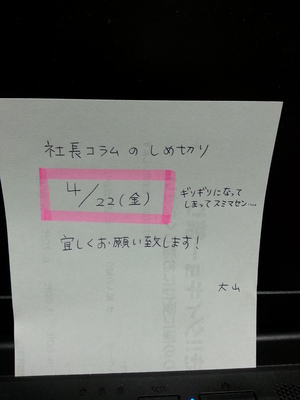 社長コラムのしめ切り
4/22(金)
ギリギリになって
しまってスミマセン…。
宜しくお願い致します!
大山